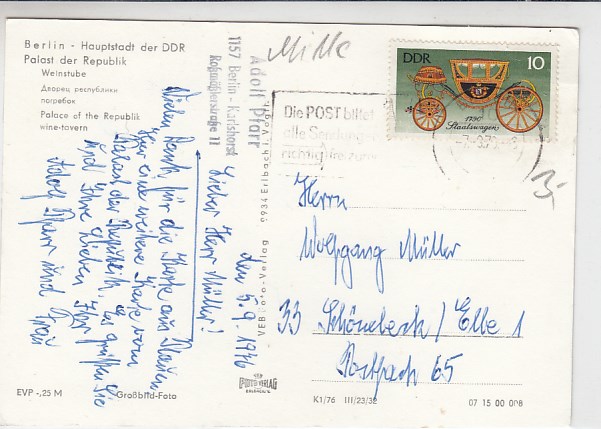 Berlin - Hauptstadt der DDR
Palast der Republik
Weinstube
Дворец республики
погребок
Palace of the Republik
wine-tavern
Mitte
Adolf Pfarr
1157 Berlin - Karlshorst
Roßmäßlerstraße 11
Die POST bittet
alle Sendungen
richtig
DDR
10
1790
Staatswagen
3,-
den 5.9.1976
Lieber Herr Müller!
Vielen Dank für die Karte aus Plauen
Hier eine weitere Karte vom
Palast der Republik. Es grüßen Sie
und Ihre Lieben Ihr
Adolf Pfarr und Frau
VEB Foto-Verlag 9934 Erlbach i. Vogtl.
Herrn
Wolfgang Müller
33 Schönebeck/Elbe 1
Postfach 65
EVP -,25 M
Großbild-Foto
FOTO VERLAG
K1/76 III/23/32
07 15 00 008